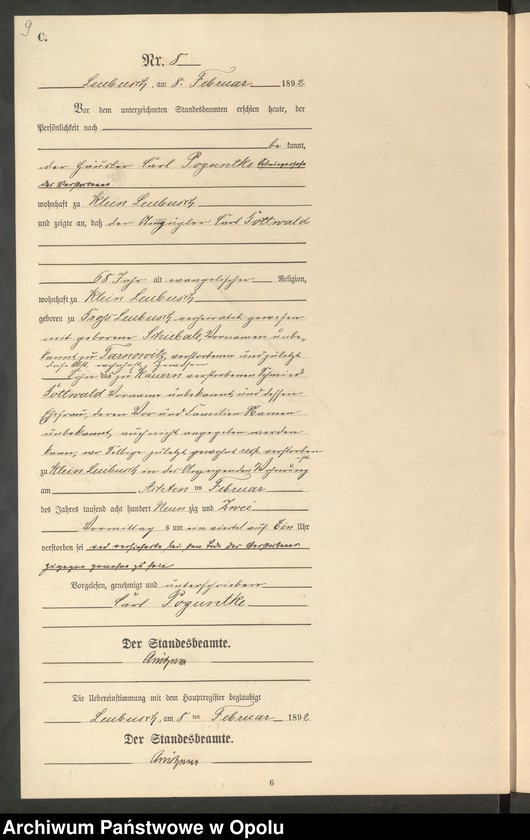 9
C.
Nr. 8
Leubusch, am 8. Februar 1892
Vor dem unterzeichneten Standesbeamten erschien heute, der
Persönlichkeit nach
be kannt,
der Häusler Carl Poguntke
des Verstorbenen
wohnhaft zu Klein Leubusch
und zeigte an, daß der Auszügler Carl Gottwald
68 Jahr alt evangelischer Religion,
wohnhaft zu Klein Leubusch
geboren zu Groß Leubusch, verheiratet gewesen
mit geborener Schiebale, Vornamen unbe-
kannt zu Tarnowitz verstorbenen und zuletzt
daselbst wohnhaft gewesen
Sohn des zu Kauern verstorbenen Schmied
Gottwald Vorname unbekannt und dessen
Ehefrau, deren Vor und Familien Namen
unbekannt, auch nicht angegeben werden
kann, wo Selbige zuletzt gewohnt resp. verstorben
ist,
zu Klein Leubusch in des Anzeigenden Wohnung
am Achten ten Februar
des Jahres tausend acht hundert Neun zig und Zwei
Vormittag s um ein viertel auf Ein Uhr
verstorben sei und versicherte bei dem Tode des Verstorbenen
zugegen gewesen zu sein
Vorgelesen, genehmigt und unterschrieben
Carl Poguntke
Der Standesbeamte.
Die Uebereinstimmung mit dem Hauptregister beglaubigt
Leubusch, am 8 ten Februar 1892
Der Standesbeamte.
6
Archiwum Państwowe w Opolu